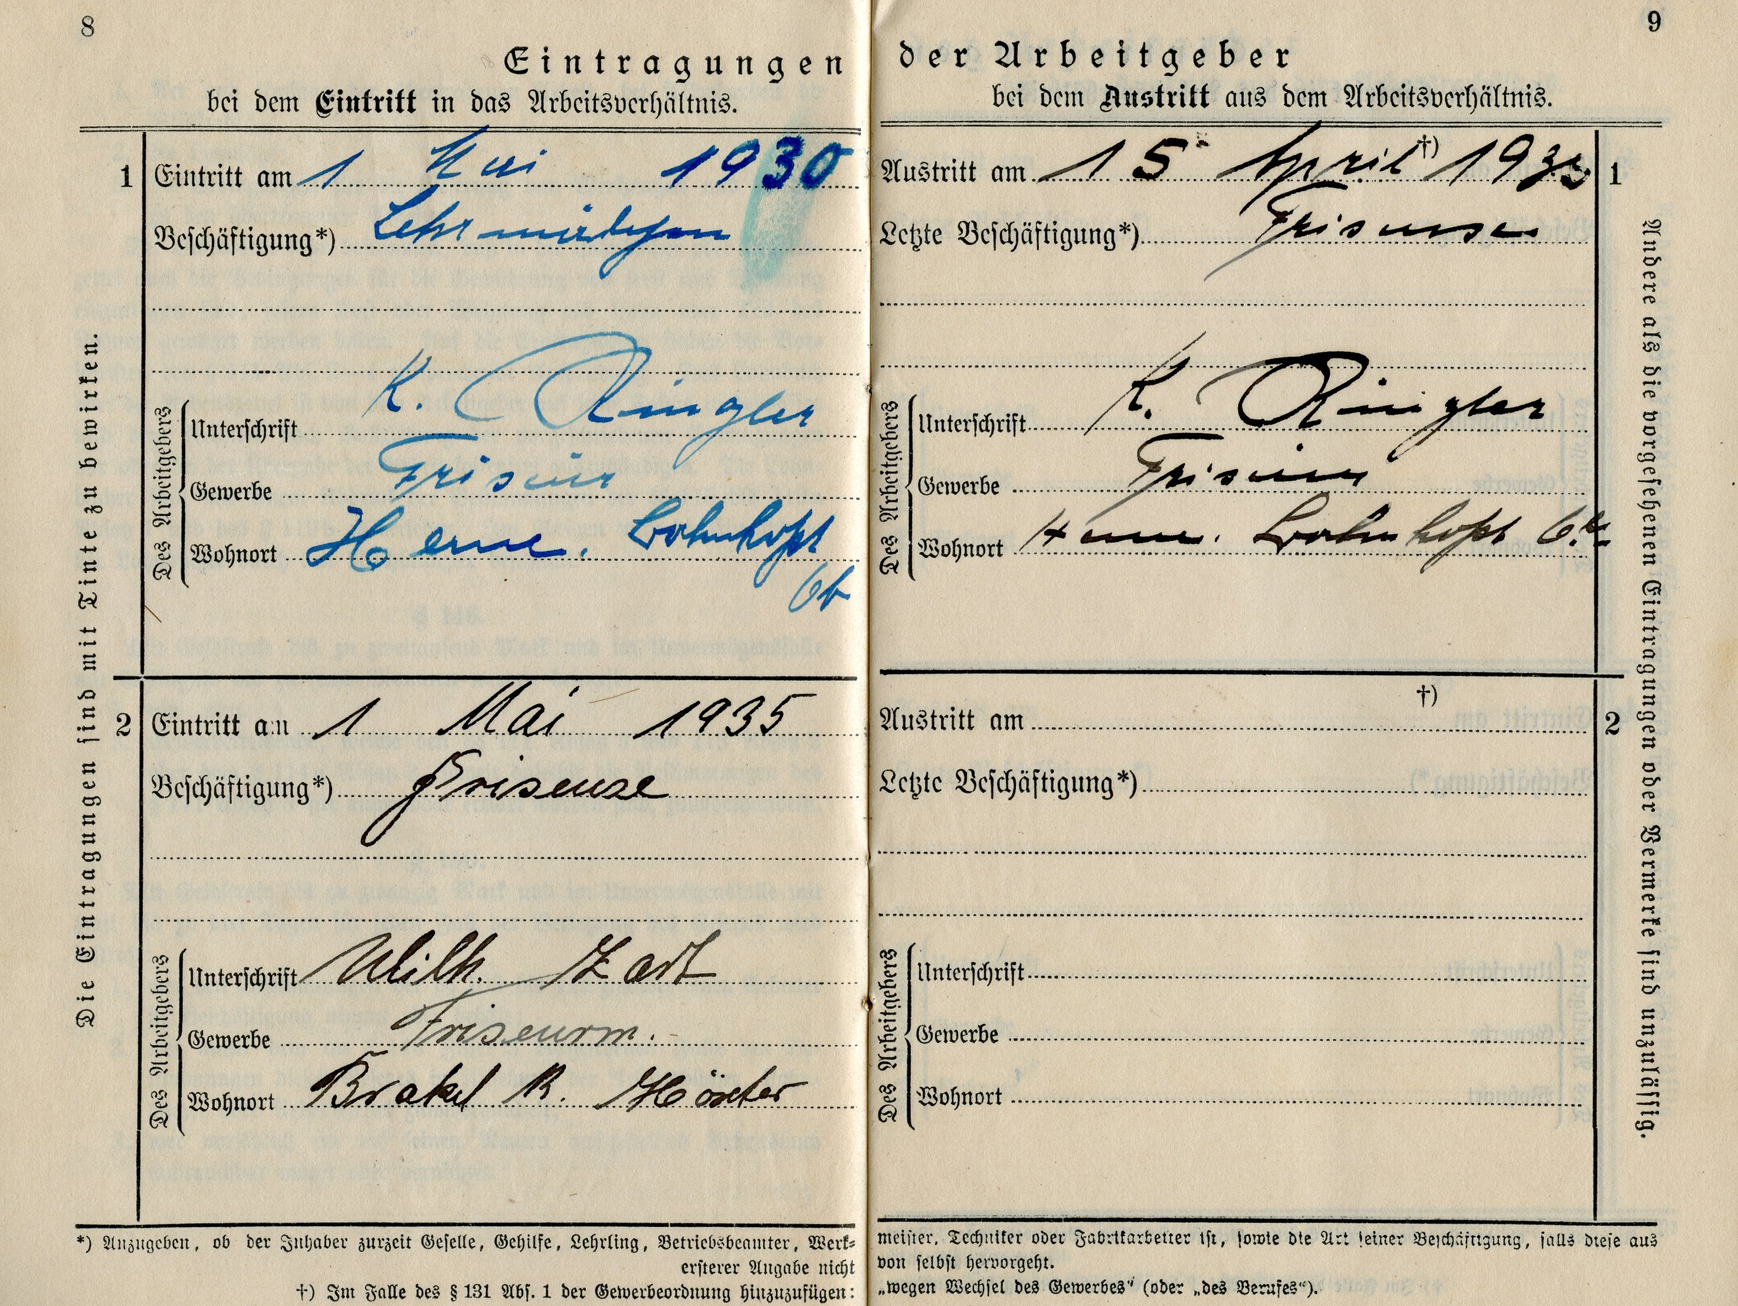 8
Eintragungen
bei dem Eintritt in das Arbeitsverhältnis.
Die Eintragungen sind mit Tinte zu bewirken.
1
Eintritt am 1 Mai 1930
Beschäftigung*) Lehrmädchen
Des Arbeitgebers
Unterschrift K. Ringler
Gewerbe Frisör
Wohnort Herne. Bahnhofst
6b
2
Eintritt am 1 Mai 1935
Beschäftigung*) Friseuse
Des Arbeitgebers
Unterschrift Wilh. Zart
Gewerbe Friseurm.
Wohnort Brakel K. Höxter
*) Anzugeben, ob der Inhaber zurzeit Geselle, Gehilfe, Lehrling, Betriebsbeamter, Werk-
ersterer Angabe nicht
†) Im Falle des § 131 Abs. 1 der Gewerbeordnung hinzuzufügen:
9
der Arbeitgeber
bei dem Austritt aus dem Arbeitsverhältnis.
†)
Austritt am 15 April 193
1
Letzte Beschäftigung*) Friseuse
Des Arbeitgebers
Unterschrift K. Ringler
Gewerbe Friseur
Wohnort Herne. Bahnhofst
†)
Austritt am
2
Letzte Beschäftigung*)
Des Arbeitgebers
Unterschrift
Gewerbe
Wohnort
Andere als die vorgesehenen Eintragungen oder Vermerke sind unzulässig.
meister, Techniker oder Fabrikarbeiter ist, sowie die Art seiner Beschäftigung, falls diese aus
von selbst hervorgeht.
„wegen Wechsel des Gewerbes“ (oder „des Berufes“).